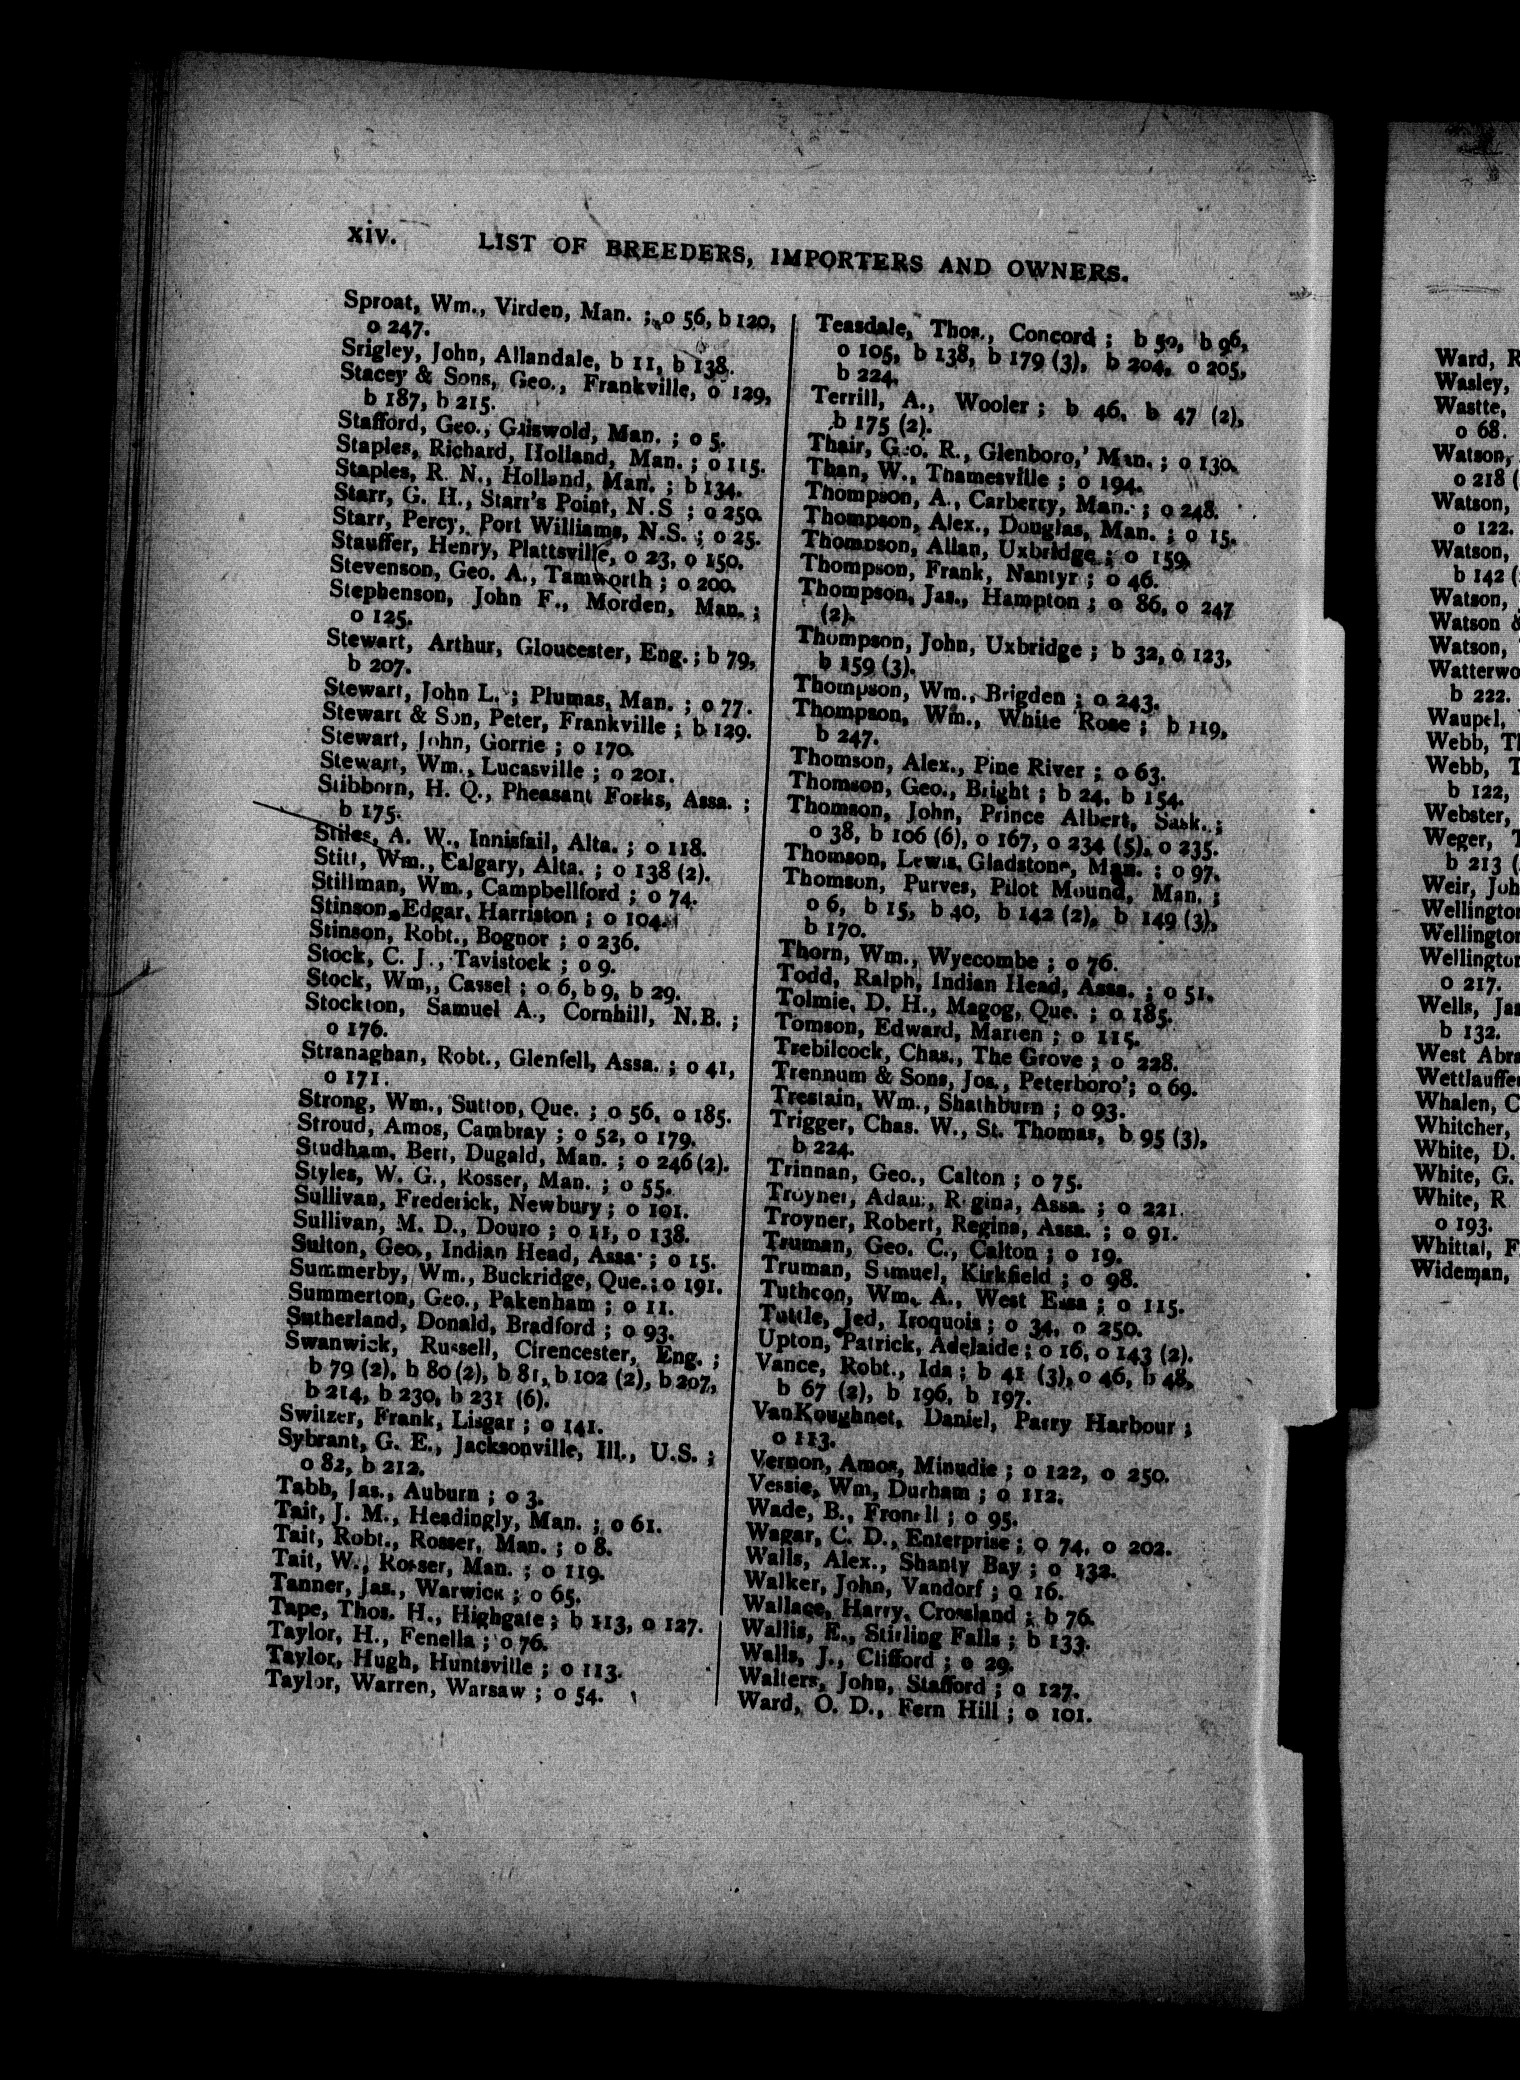 xiv. LIST OF BREEDERS, IMPORTERS AND OWNERS.
Sproat, Wm., Virden, Man. ; o 56, b 120,
o 247.
Srigley, John, Allandale, b 11, b 138.
Stacey & Sons, Geo., Frankville, o 129,
b 187, b 215.
Stafford, Geo., Griswold, Man. ; o 5.
Staples, Richard, Holland, Man. ; o 115.
Staples, R. N., Holland, Man. ; b 134.
Starr, G. H., Starr's Point, N.S ; o 250.
Starr, Percy, Port Williams, N.S. ; o 25.
Stauffer, Henry, Plattsville, o 23, o 150.
Stevenson, Geo. A., Tamworth ; o 200.
Stephenson, John F., Morden, Man. ;
o 125.
Stewart, Arthur, Gloucester, Eng. ; b 79,
b 207.
Stewart, John L. ; Plumas, Man. ; o 77.
Stewart & Son, Peter, Frankville ; b 129.
Stewart, John, Gorrie ; o 170.
Stewart, Wm., Lucasville ; o 201.
Stibborn, H. Q., Pheasant Forks, Assa. ;
b 175.
Stiles, A. W., Innisfail, Alta. ; o 118.
Stitt, Wm., Calgary, Alta. ; o 138 (2).
Stillman, Wm., Campbellford ; o 74.
Stinson, Edgar, Harriston ; o 104.
Stinson, Robt., Bognor ; o 236.
Stock, C. J., Tavistock ; o 9.
Stock, Wm,, Cassel ; o 6, b 9, b 29.
Stockton, Samuel A., Cornhill, N.B. ;
o 176.
Stranaghan, Robt., Glenfell, Assa. ; o 41,
o 171.
Strong, Wm., Sutton, Que. ; o 56, o 185.
Stroud, Amos, Cambray ; o 52, o 179.
Studham, Bert, Dugald, Man. ; o 246 (2).
Styles, W. G., Rosser, Man. ; o 55.
Sullivan, Frederick, Newbury ; o 101.
Sullivan, M. D., Douro ; o 11, o 138.
Sulton, Geo., Indian Head, Assa· ; o 15.
Summerby, Wm., Buckridge, Que. ; o 191.
Summerton, Geo., Pakenham ; o 11.
Sutherland, Donald, Bradford ; o 93.
Swanwick, Russell, Cirencester, Eng. ;
b 79 (2), b 80 (2), b 81, b 102 (2), b 207,
b 214, b 230, b 231 (6).
Switzer, Frank, Lisgar ; o 141.
Sybrant, G. E., Jacksonville, Ill., U.S. ;
o 82, b 212.
Tabb, Jas., Auburn ; o 3.
Tait, J. M., Headingly, Man. ; o 61.
Tait, Robt., Rosser, Man. ; o 8.
Tait, W., Rosser, Man. ; o 119.
Tanner, Jas., Warwick ; o 65.
Tape, Thos. H., Highgate ; b 113, o 127.
Taylor, H., Fenella ; o 76.
Taylor, Hugh, Huntsville ; o 113.
Taylor, Warren, Warsaw ; o 54.
Teasdale, Thos., Concord ; b 50, b 96,
o 105, b 138, b 179 (3), b 204, o 205,
b 224.
Terrill, A., Wooler ; b 46, b 47 (2),
b 175 (2).
Thair, Geo. R., Glenboro,' Man. ; o 130.
Than, W., Thamesville ; o 194.
Thompson, A., Carberry, Man. ; o 248.
Thompson, Alex., Douglas, Man. ; o 15.
Thompson, Allan, Uxbridge ; o 159.
Thompson, Frank, Nantyr ; o 46.
Thompson, Jas., Hampton ; o 86, o 247
(2).
Thompson, John, Uxbridge ; b 32, o 123,
b 159 (3).
Thompson, Wm., Brigden ; o 243.
Thompson, Wm., White Rose ; b 119,
b 247.
Thomson, Alex., Pine River ; o 63.
Thomson, Geo., Bright ; b 24, b 154.
Thomson, John, Prince Albert, Sask. ;
o 38, b 106 (6), o 167, o 234 (5), o 235.
Thomson, Lewis, Gladstone, Man. ; o 97.
Thomson, Purves, Pilot Mound, Man. ;
o 6, b 15, b 40, b 142 (2), b 149 (3),
b 170.
Thorn, Wm., Wyecombe ; o 76.
Todd, Ralph, Indian Head, Assa. ; o 51.
Tolmie, D. H., Magog, Que. ; o 185.
Tomson, Edward, Marten ; o 115.
Trebilcock, Chas., The Grove ; o 228.
Trennum & Sons, Jos., Peterboro'; o 69.
Trestain, Wm., Shathburn ; o 93.
Trigger, Chas. W., St. Thomas, b 95 (3),
b 224.
Trinnan, Geo., Calton ; o 75.
Troyner, Adam, Regina, Assa. ; o 221.
Troyner, Robert, Regina, Assa. ; o 91.
Truman, Geo. C., Calton ; o 19.
Truman, Samuel, Kirkfield ; o 98.
Tutheon, Wm. A., West Essa ; o 115.
Tuttle, Jed, Iroquois ; o 34, o 250.
Upton, Patrick, Adelaide ; o 16, o 143 (2).
Vance, Robt., Ida ; b 41 (3), o 46, b 48,
b 67 (2), b 196, b 197.
VanKoughnet, Daniel, Parry Harbour ;
o 113.
Vernon, Amos, Minudie ; o 122, o 250.
Vessie, Wm, Durham ; o 112.
Wade, B., ; o 95.
Wagar, C. D., Enterprise ; o 74, o 202.
Walls, Alex., Shanty Bay ; o 132.
Walker, John, Vandorf ; o 16.
Wallace, Harry, Crossland ; b 76.
Wallis, E., Stirling Falls ; b 133.
Walls, J., Clifford ; o 29.
Walters, John, Stafford ; o 127.
Ward, O. D., Fern Hill ; o 101.
Ward, R
Wasley,
Wastte,
o 68.
Watson,
o 218 (
Watson,
o 122.
Watson,
b 142 (
Watson,
Watson &
Watson,
Watterwo
b 222.
Waupel,
Webb, Th
Webb, T
b 122,
Webster,
Weger, T
b 213 (
Weir, Joh
Wellington
Wellington
Wellington
o 217.
Wells, Jas
b 132.
West Abra
Wettlauffer
Whalen, C
Whitcher,
White, D.
White, G.
White, R
o 193.
Whittal, F
Wideman,